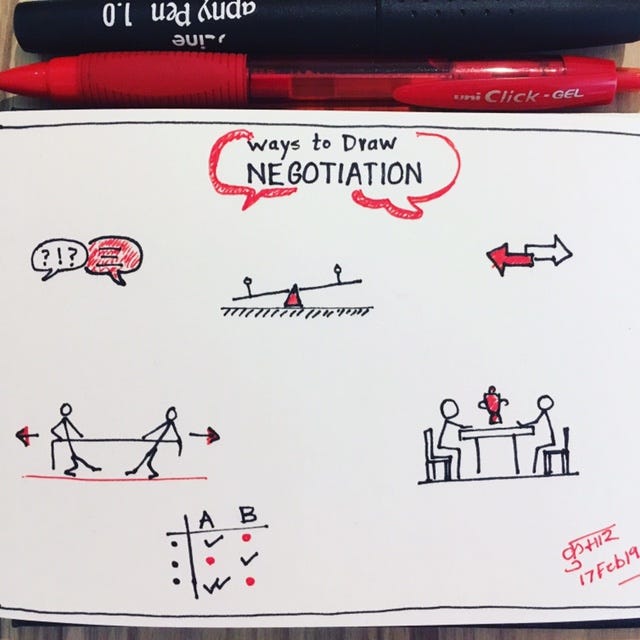 Pen 1.0
uni Click-GEL
Ways to Draw
NEGOTIATION
?!?
A B
17Feb19